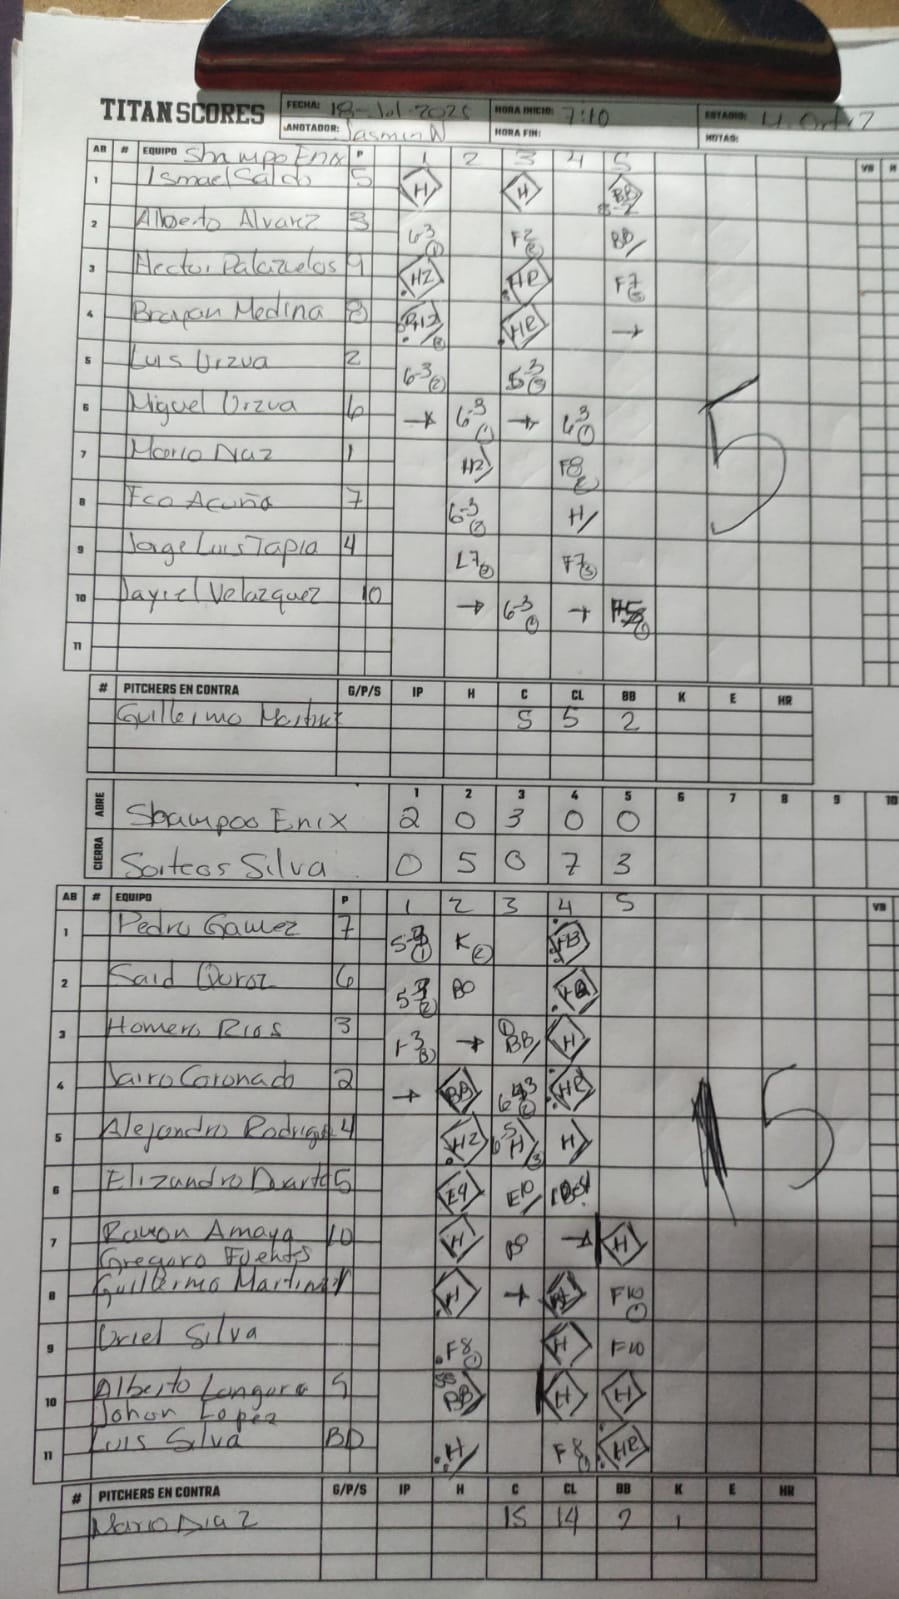 TITANSCORES FECHA: 18-Jul-2025 HORA INICIO: 7:10 ESTADIO:
ANOTADOR: Jasmin N HORA FIN: NOTAS:
AB # EQUIPO Shampo Enix P 1 2 3 4 5 VB H
1 Ismael 5 H H BB
2 Alberto Alvarz 3 6-3 1 F2 2 BB
3 Hector Palazuelos 9 H2 HR F7
4 Brayan Medina 8 HR →
5 Luis Urzua 2 6-3 2 5-3 3
6 Miguel Urzua 6 → 6-3 1 → 6-3 1
7 Mario Diaz 1 H2 F8 2
8 Fco Acuña 7 6-3 2 H
9 Jorge Luis Tapia 4 L7 F7 3
10 Dayrel Velazquez 10 → 6-3 1 →
11
# PITCHERS EN CONTRA G/P/S IP H C CL BB K E HR
Guillermo 5 5 2
5
1 2 3 4 5 6 7 8 9 10
ABRE Shampoo Enix 2 0 3 0 0
CIERRA Sorteos Silva 0 5 0 7 3
AB # EQUIPO P 1 2 3 4 5 VB
1 Pedro Gamez 7 K 2
2 Said 6
3 Homero Rios 3 1-3 3 → BB H
4 Jairo Coronado 2 → BB HR
5 Alejandro 4 H2 H H
6 Elizandro 5 E4 E10
7 Ramon Amaya 10 H → H
Gregoro
8 Guillermo H → F10 1
9 Uriel Silva F8 1 H F10
10 Alberto BB H H
Johan Lopez
11 Luis Silva BD H F8 HR
15
# PITCHERS EN CONTRA G/P/S IP H C CL BB K E HR
Mario Diaz 15 14 2 1